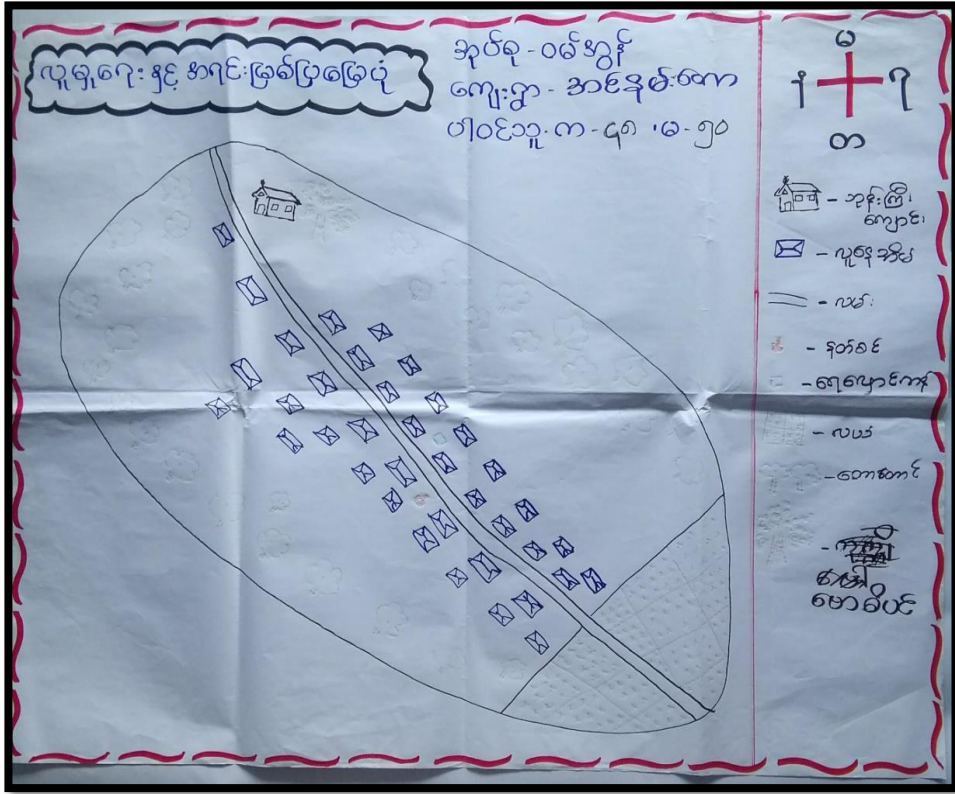 လူမှုရေးနှင့် အရင်းမြစ်ပြမြေပုံ
အုပ်စု - ဝမ်အွန်
ကျေးရွာ - အင်နမ်းတော
ပါဝင်သူ - က - ၄၈ ၊ မ - ၅၀
မ
န
ရ
တ
- ဘုန်းကြီး
ကျောင်း
- လူနေအိမ်
- လမ်း
- နတ်စင်
- ရေလှောင်ကန်
- လယ်
- တောတောင်
ဗောဓိပင်